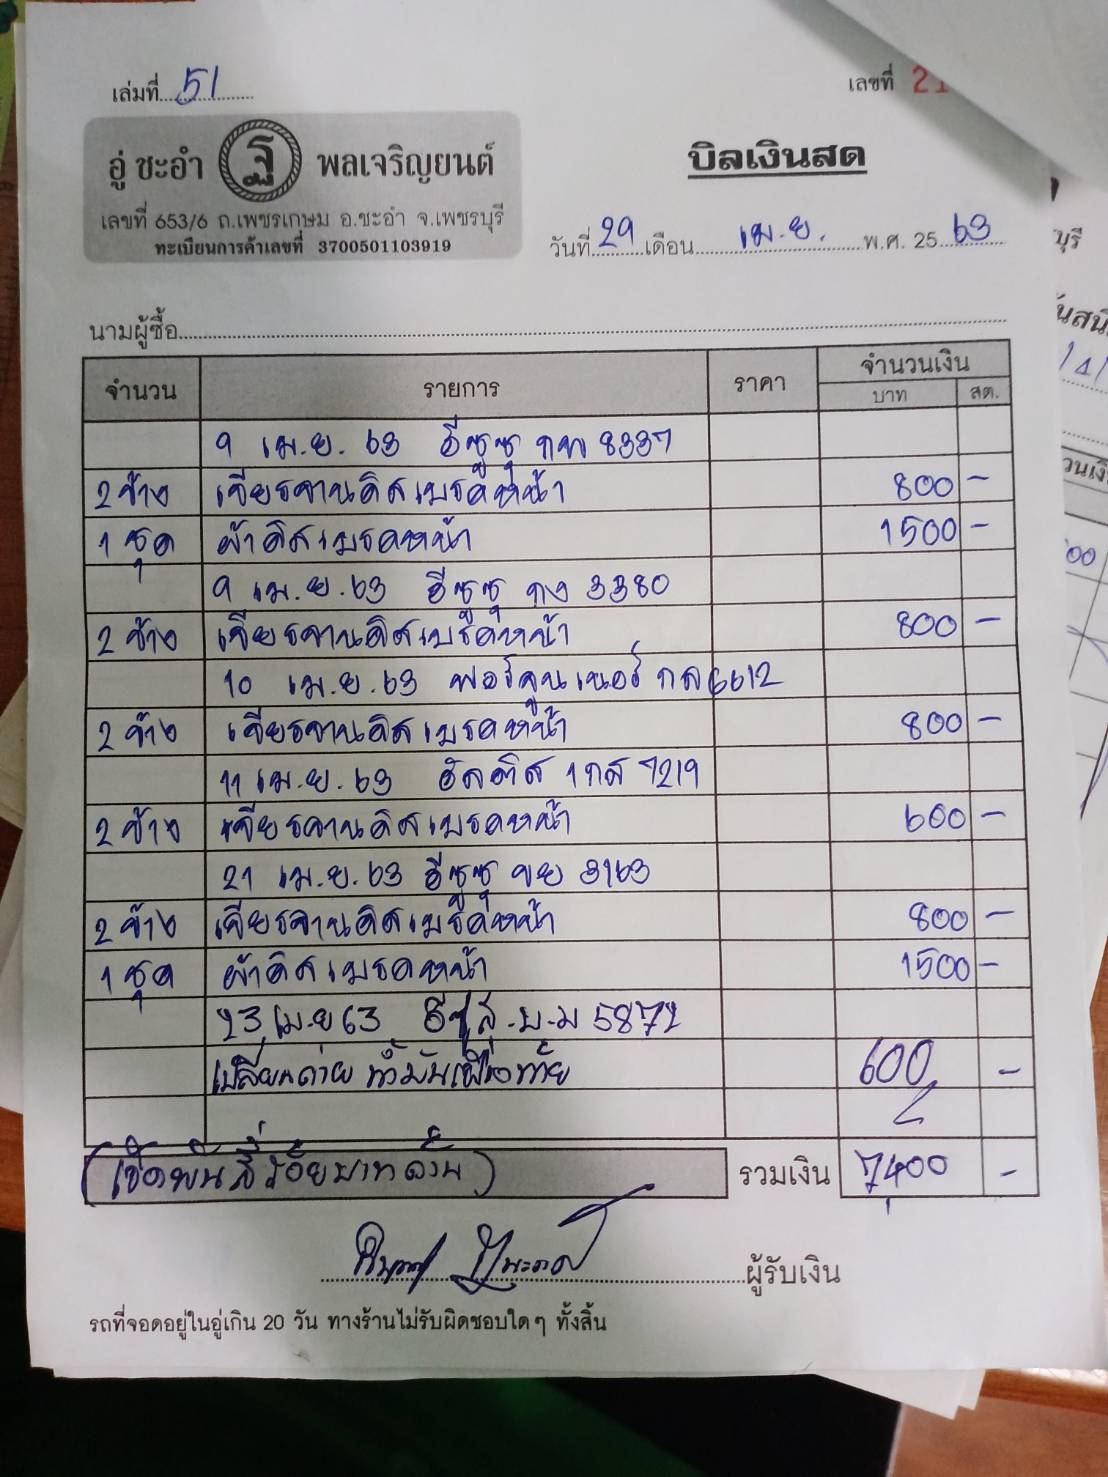 เล่มที่ 51
เลขที่ 21
อู่ ชะอำ ฐ พลเจริญยนต์
เลขที่ 653/6 ถ.เพชรเกษม อ.ชะอำ จ.เพชรบุรี
ทะเบียนการค้าเลขที่ 3700501103919
บิลเงินสด
วันที่ 29 เดือน เม.ย. พ.ศ. 25 63
นามผู้ซื้อ
จำนวน รายการ ราคา จำนวนเงิน
บาท สต.
9 เม.ย. 63 อีซูซุ กท 8337
2 ข้าง เจียรจานดิสเบรคหน้า 800 -
1 ชุด ผ้าดิสเบรคหน้า 1500 -
9 เม.ย. 63 อีซูซุ กง 3380
2 ข้าง เจียรจานดิสเบรคหน้า 800 -
10 เม.ย. 63 ฟอร์จูนเนอร์ กล 6612
2 ข้าง เจียรจานดิสเบรคหน้า 800 -
11 เม.ย. 63 อัลติส 1กส 7219
2 ข้าง เจียรจานดิสเบรคหน้า 600 -
21 เม.ย. 63 อีซูซุ ขย 3163
2 ข้าง เจียรจานดิสเบรคหน้า 800 -
1 ชุด ผ้าดิสเบรคหน้า 1500 -
23 เม.ย 63 อีซูซุ บ.ม 5872
เปลี่ยนถ่าย น้ำมันเฟืองท้าย 600 -
(เจ็ดพันสี่ร้อยบาทถ้วน) รวมเงิน 7,400 -
ผู้รับเงิน
รถที่จอดอยู่ในอู่เกิน 20 วัน ทางร้านไม่รับผิดชอบใดๆ ทั้งสิ้น